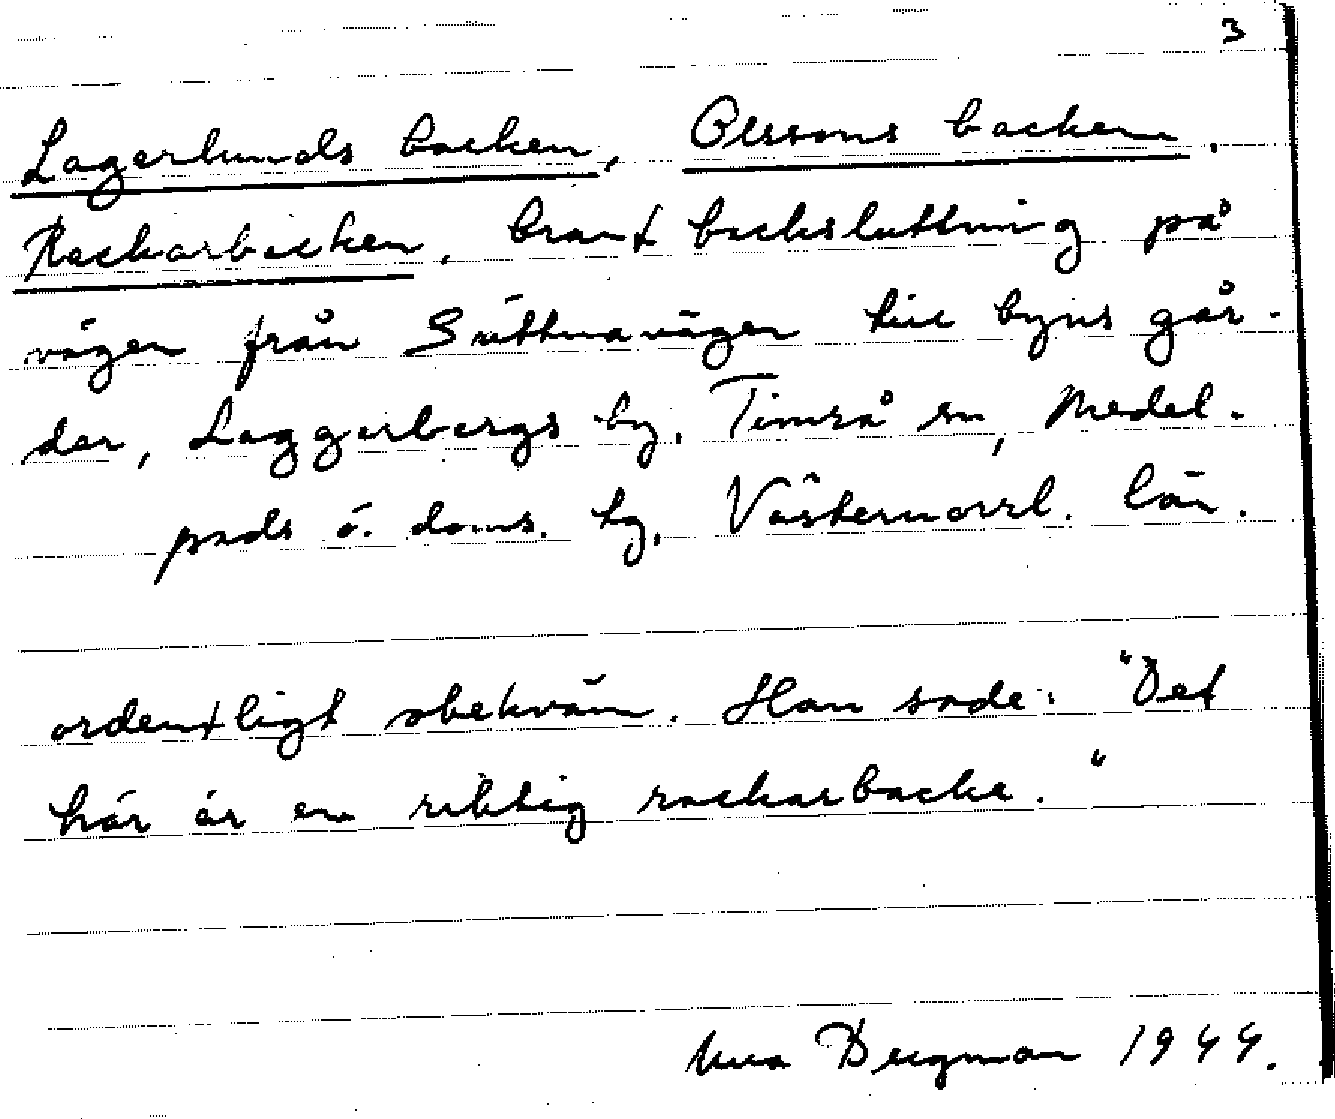 3
Lagerlunds backen, Olssons backen.
Rackarbacken. brant backsluttning på
vägen från Sättnavägen till byns går-
dar, Laggerbergs by, Timrå sn, Medel-
pads ö. doms. hg, Västernorrl. län.
ordentligt obekväm. Han sade: "Det
här är en riktig rackarbacke."
Bergman 1944.